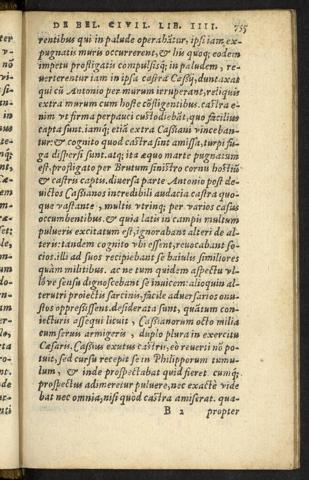 DE BEL. CIVIL. LIB. IIII. 755
rentibus qui in palude operabãtur, ipsi iam ex-
pugnatis muris occurrerent, & his quoq; eodem
impetu profligatis compulsisq; in paludem, re-
uerterentur iam in ipsa castra Cassij, duntaxat
qui cũ Antonio per murum irruperant, reliquis
extra murum cum hoste cõfligentibus. castra e-
nim vt firma perpauci custodiebãt, quo facilius
capta sunt. iamq; etiã extra Cassiani vinceban-
tur: & cognito quod castra sint amissa, turpi fu-
ga dispersi sunt. atq; ita æquo marte pugnatum
est, profligato per Brutum sinistro cornu hostiũ
& castris captis. diuersa parte Antonio post de-
uictos Cassianos incredibili audacia castra quo-
que vastante, multis vtrinq; per varios casus
occumbentibus. & quia latis in campis multum
pulueris excitatum est, ignorabant alteri de al-
teris: tandem cognito vbi essent, reuocabant so-
cios. illi ad suos recipiebant se baiulis similiores
quàm militibus. ac ne tum quidem aspectu vl-
lo ve sensu dignoscebant se inuicem: alioquin al-
terutri proiectis sarcinis, facile aduersarios onu-
stos oppressissent. desiderata sunt, quãtum con-
iecturis assequi licuit, Cassianorum octo milia
cum seruis armigeris, duplo plura in exercitu
Cæsaris. Cassius exutus castris, eò reuersi nõ po-
tuit, sed cursu recepit se in Philipporum tumu-
lum, & inde prospectabat quid fieret. cumq;
prospectus adimeretur puluere, nec exactè vide
bat nec omnia, nisi quod castra amiserat. qua-
B 2 propter